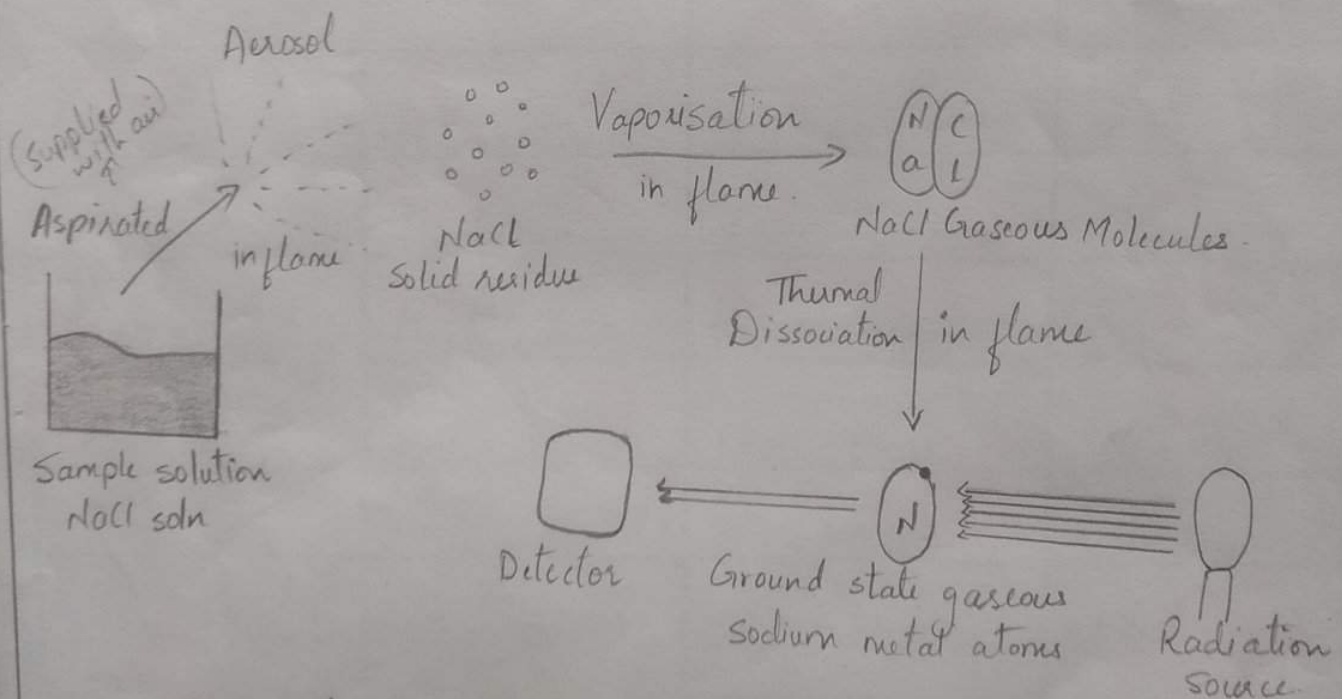 Aerosol
(Supplied
with air)
Aspirated
in flame
NaCl
Solid residue
Vaporisation
in flame.
Na Cl
NaCl Gaseous Molecules.
Thermal
Dissociation
in flame
Sample solution
NaCl soln
Detector
N
Ground state gaseous
sodium metal atoms
Radiation
source.